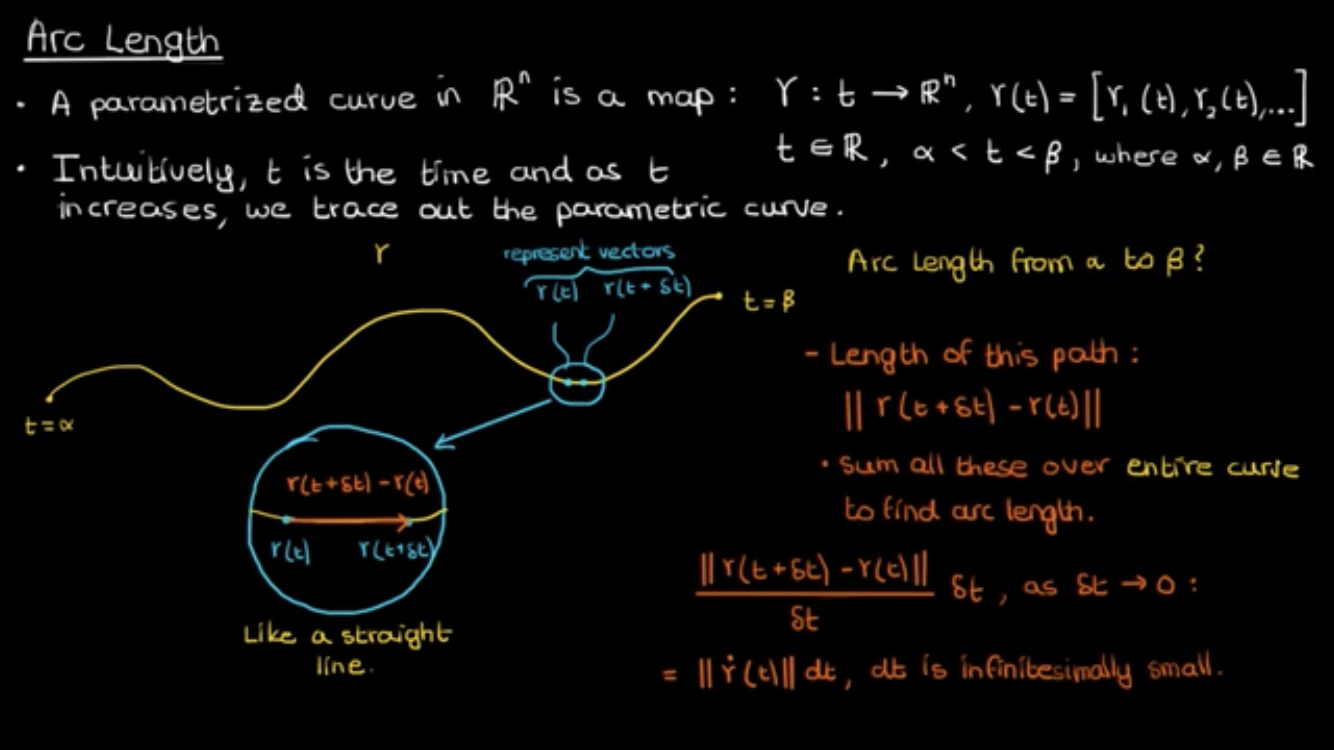 Arc Length
· A parametrized curve in ℝⁿ is a map : γ : t → ℝⁿ, γ(t) = [γ₁(t), γ₂(t),...]
t ∈ ℝ, α < t < β, where α, β ∈ ℝ
· Intuitively, t is the time and as t
increases, we trace out the parametric curve.
γ
represent vectors
γ(t) γ(t + δt)
t = β
t = α
Arc Length from α to β?
- Length of this path :
|| γ(t + δt) - γ(t) ||
· Sum all these over entire curve
to find arc length.
γ(t+δt) - γ(t)
γ(t) γ(t+δt)
Like a straight
line.
|| γ(t + δt) - γ(t) ||
δt
δt, as δt → 0 :
= || γ̇(t) || dt, dt is infinitesimally small.